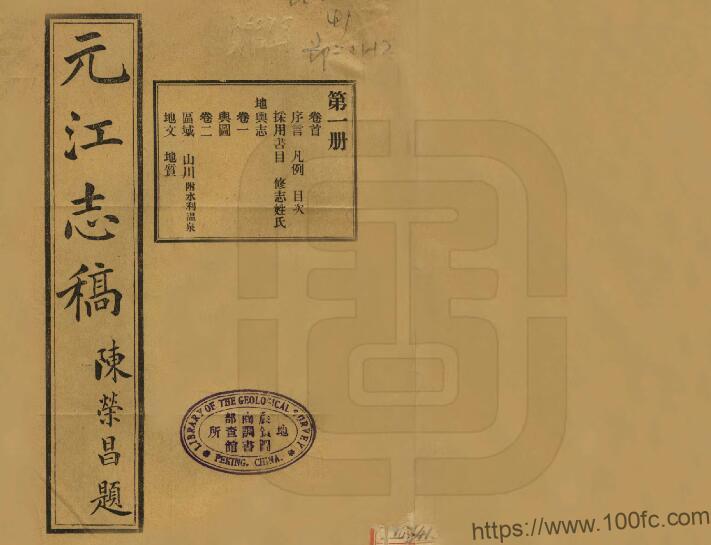 元江志稿
陳榮昌題
第一册
卷首
序言 凡例 目次
採用書目 修志姓氏
地輿志
卷一
輿圖
卷二
區域 山川附水利溫泉
地文 地質
LIBRARY OF THE GEOLOGICAL SURVEY
PEKING, CHINA.
https://www.100fc.com